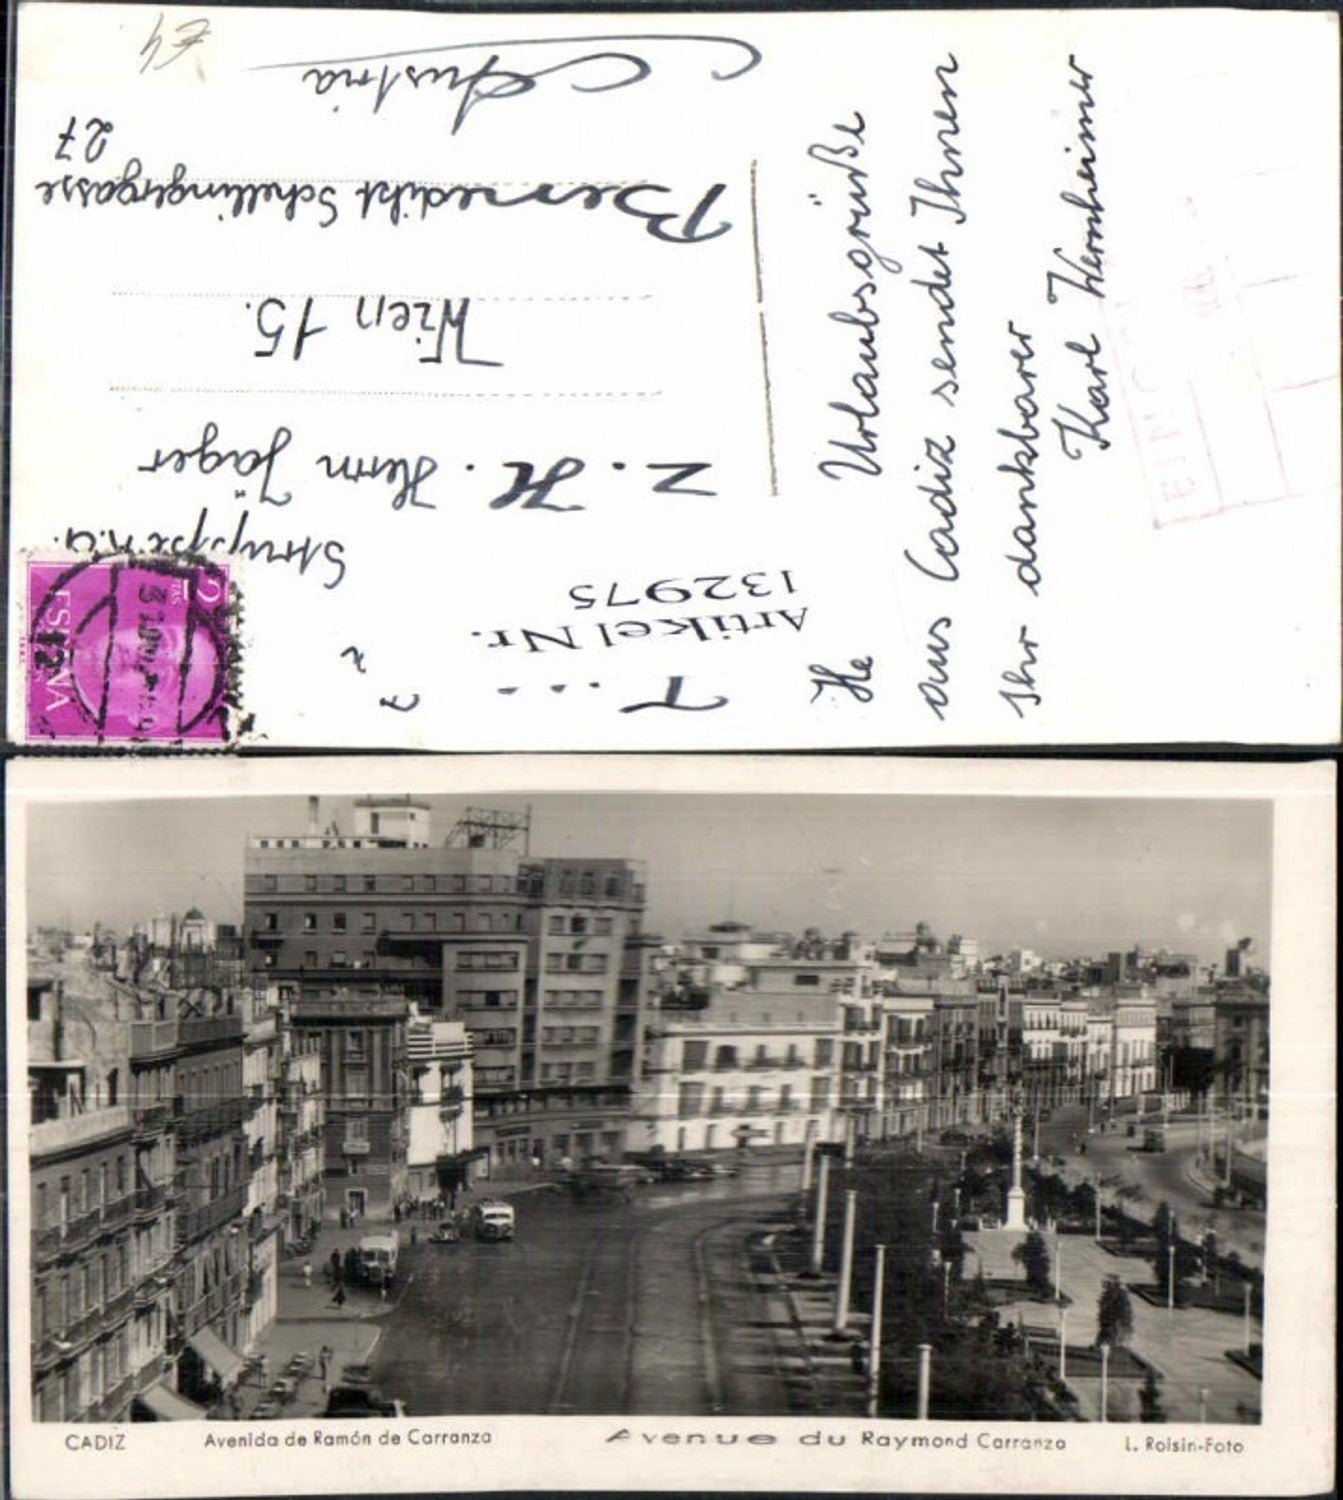 €4
Austria
27
Benedikt Schellingergasse
Wien 15.
Z. H. Herrn Jäger
Artikel Nr.
132975
T...
2
PTAS
ESPAÑA
12
He
Urlaubsgrüße
aus Cadiz sendet Ihnen
Ihr dankbarer
Karl Kernheimer
CADIZ
Avenida de Ramón de Carranza
Avenue du Raymond Carranza
L. Roisin-Foto